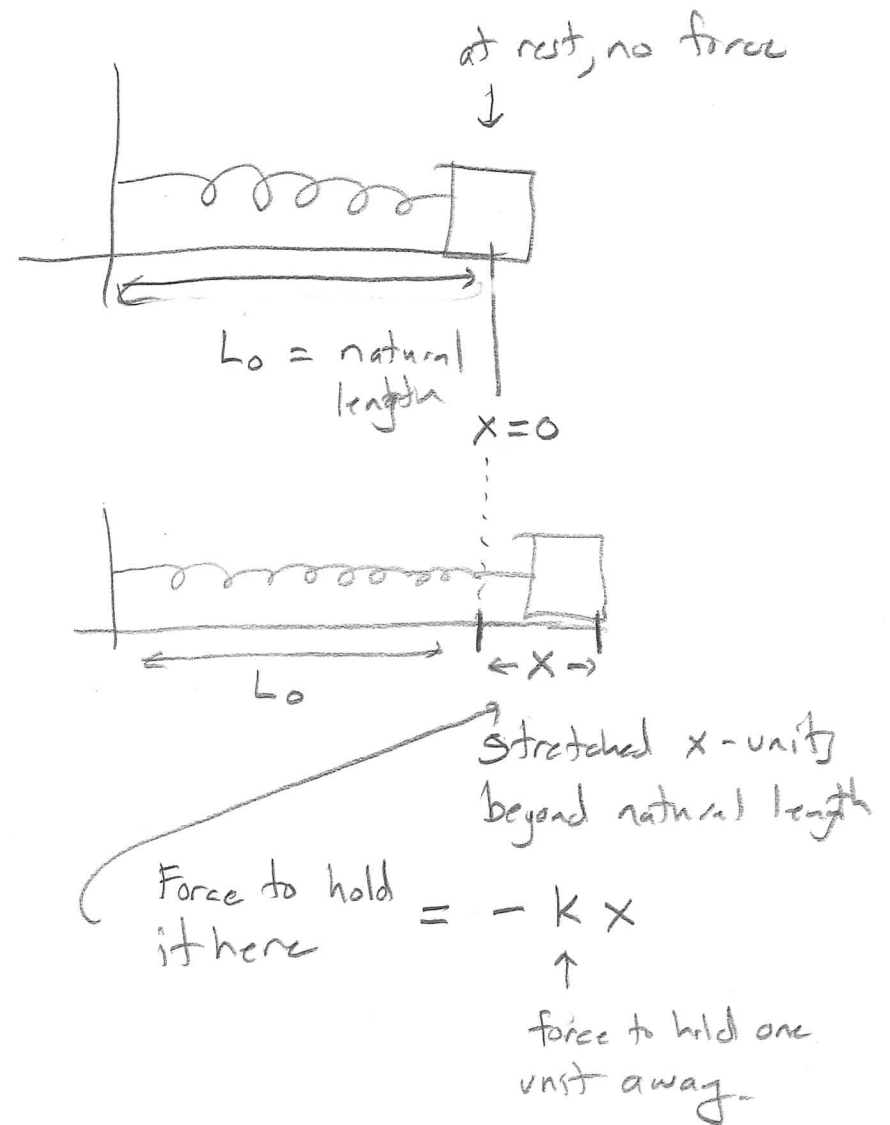 at rest, no force
L₀ = natural
length
x=0
L₀
← x →
stretched x-units
beyond natural length
Force to hold
it here
= - k x
force to hold one
unit away.